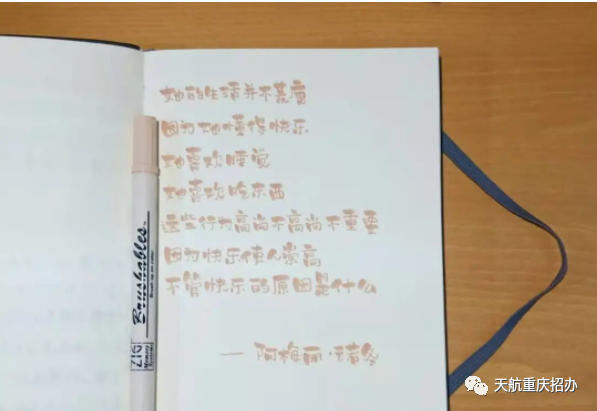 她的生活并不荒腐
因为她懂得快乐
她喜欢睡觉
她喜欢吃东西
这些行为高尚不高尚不重要
因为快乐使人崇高
不管快乐的原因是什么
— 阿梅丽·诺冬
Brushables
ZIG
Memory
System
天航重庆招办